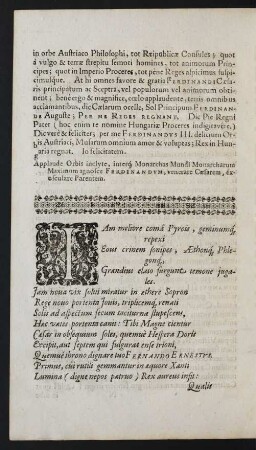 in orbe Austriaco Philosophi, tot Reipublicæ Consules; quot
à vulgo & terræ strepitu semoti homines, tot animorum Prin-
cipes; quot in Imperio Proceres, tot pene Reges aspicimus suspi-
cimusque. At hi omnes favore & gratiâ FERDINANDI Cæsa-
ris principatum ac Sceptra, vel populorum vel animorum obti-
nent; benè ergo & magnificè, cœlo applaudente, terris omnibus
acclamantibus, dic Cæsarum ocelle, Sol Principum FERDINAN-
DE Auguste; PER ME REGES REGNANT. Dic Pie Regni
Pater (hoc enim te nomine Hungariæ Proceres indigetavêre)
Dic verè & feliciter; per me FERDINANDUS III. delicium Or-
bis Austriaci, Musarum omnium amor & voluptas; Rex in Hun-
garia regnat. Io felicitatem.
Applaude Orbis inclyte, interq́ Monarchas Mundi Monarcharum
Maximum agnosce FERDINANDUM, venerare Cæsarem, ex-
osculare Parentem.
IAm meliore comâ Pyrois, geminumq́,
repexi
Eous crinem sonipes, Æthonq́, Phle-
gonq́,
Grandius elato surgunt temone juga-
les.
Jam nova vix soliti miratur in æthere Sopron
Rege novo portenta Jovis, triplicemq́, renati
Solis ad aspectum secum taciturna stupescens,
Hac vates portenta canit: Tibi Magne tientur
Cæsar in obsequium soles, quemvè Hespera Doris
Excipit, aut septem qui fulgurat ense trioni,
Quemvè throno dignare tuo FERNANDO ERNESTUS.
Primus, cui rutilè gemmantur in æquore Xanti
Lumina (digne nepos patruo) Rex aureus insit:
Qualis